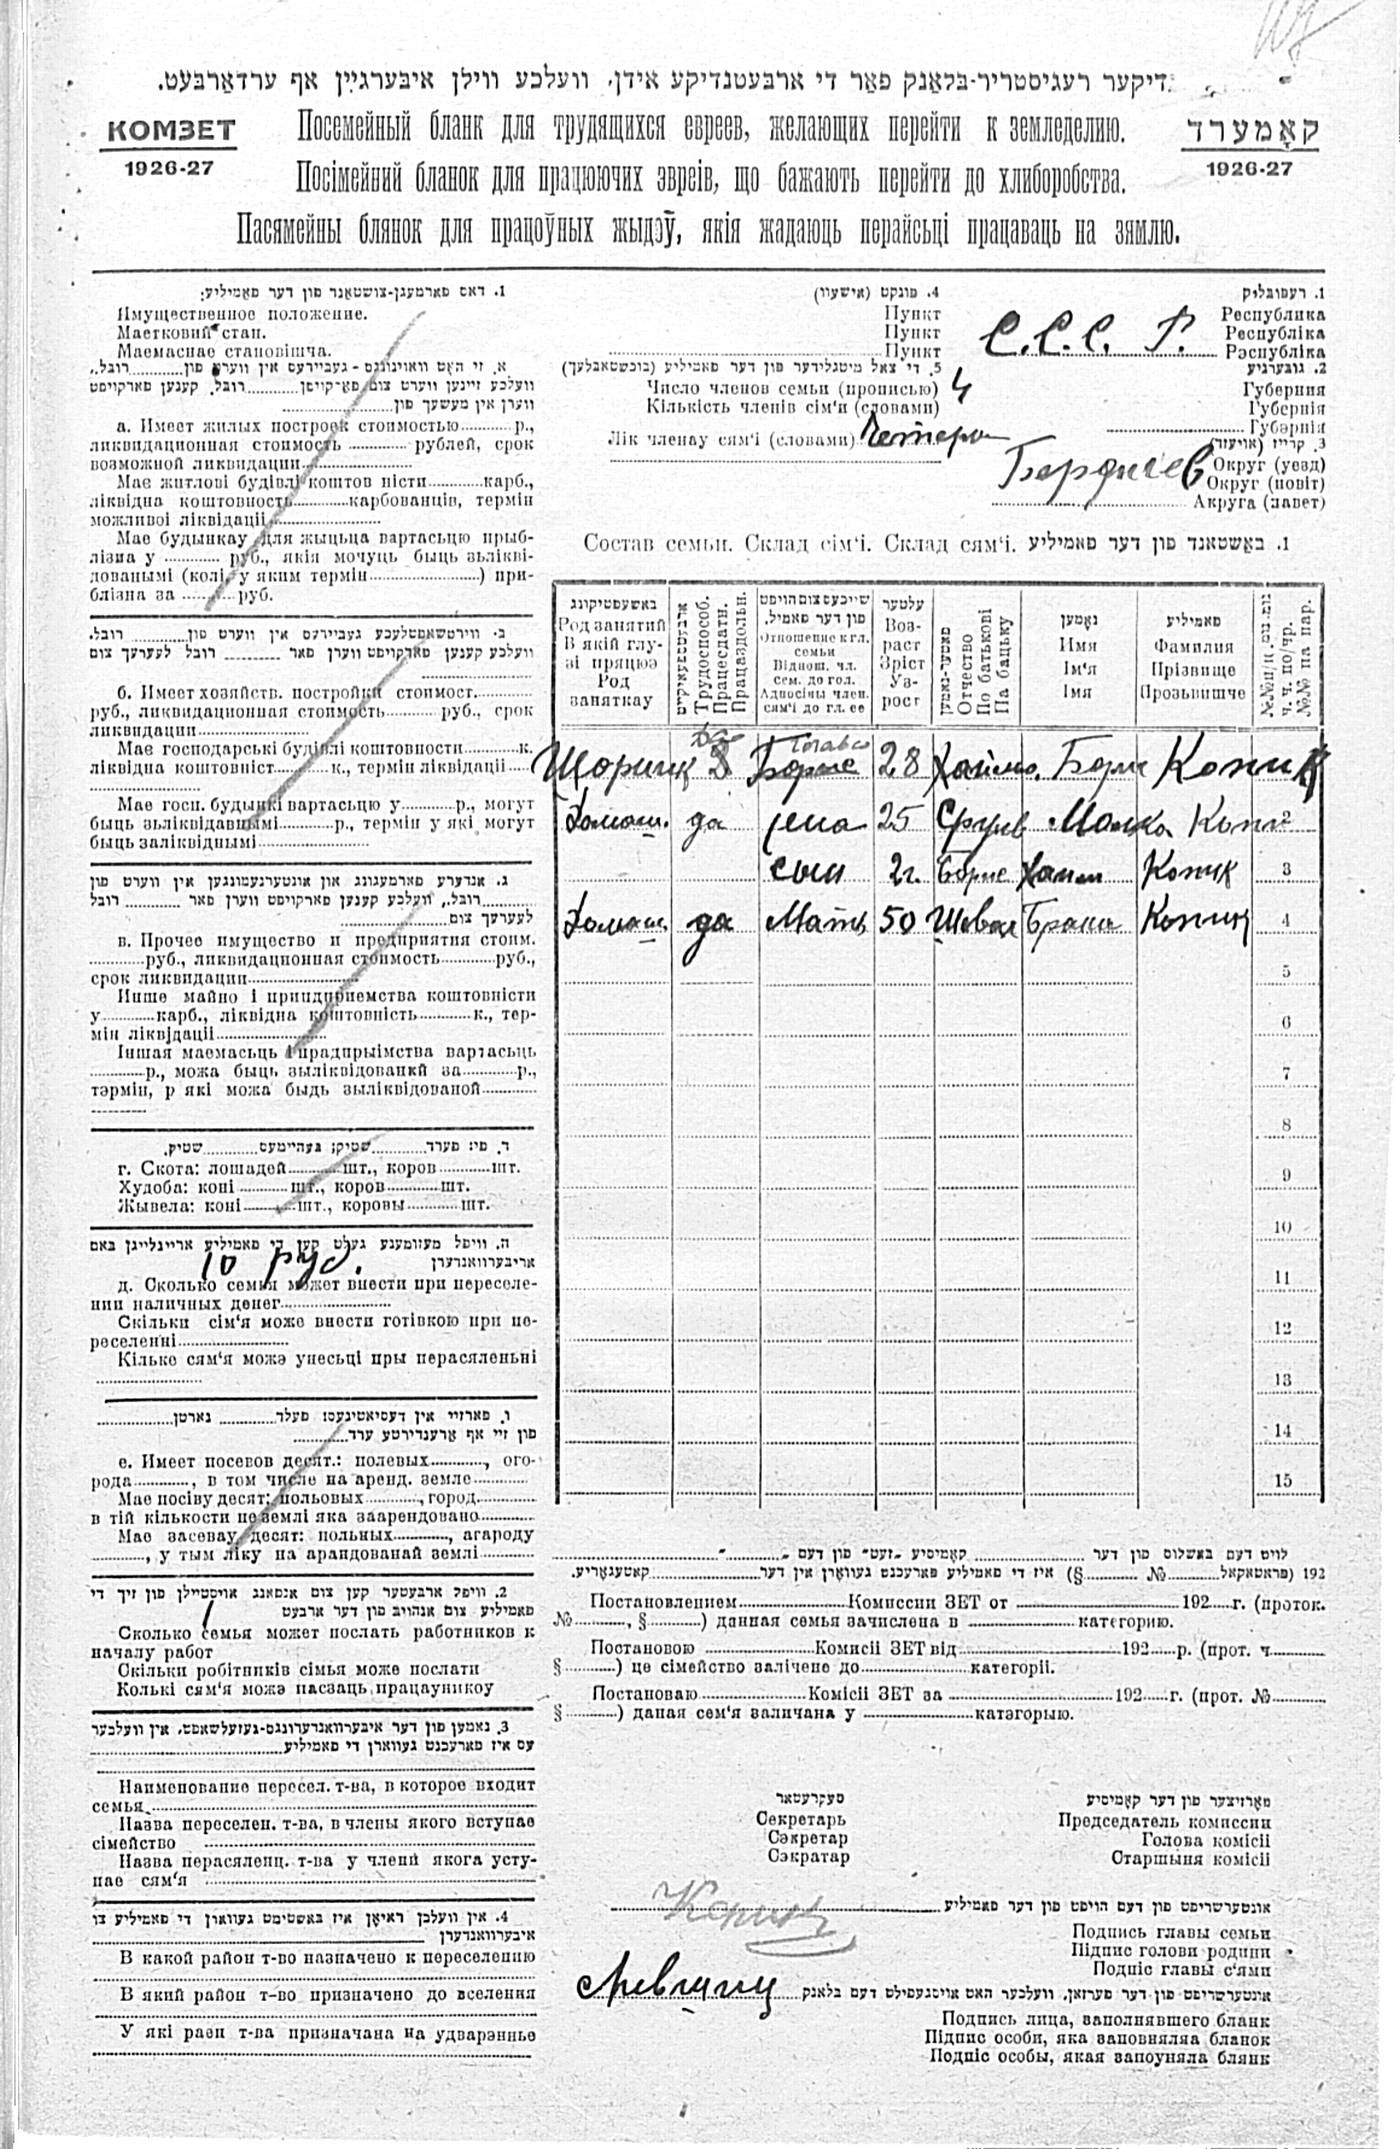 דיקער רעגיסטריר-בלאַנק פאַר די ארבעטנדיקע אידן, וועלכע ווילן איבערגיין אף ערדאַרבעט.
КОМЗЕТ
1926-27
Посемейный бланк для трудящихся евреев, желающих перейти к земледелию.
קאָמערד
1926-27
Посімейний бланок для працюючих эвреів, що бажають перейти до хлиборобства.
Пасямейны блянок для працоўных жыдэў, якія жадаюць перайсьці працаваць на зямлю.
1. רעפובליק
Республика
Республіка
Рэспубліка
С.С.С. Р.
2. גובערניע
Губерния
Губернія
Губэрнія
3. קרייז (אויעזד)
Округ (уезд)
Округ (повіт)
Акруга (павет)
Бердичев
4. פונקט (אישעוו)
Пункт
Пункт
Пункт
5. די צאל מיטגלידער פון דער פאמיליע (בוכשטאבלעך)
Число членов семьи (прописью) 4
Кількість членів сім'и (словами)
Лік членау сям'і (словами)
Состав семьи. Склад сім'і. Склад сям'і. באשטאנד פון דער פאמיליע .1
באשעפטיקונג
Род занятий
В якій глу-
зі працюэ
Род
заняткау
Трудоспособ.
Працесдатн.
Працаздольн.
שייכעס צום הויפט
פון דער פאמיל.
Отношение к гл.
семьи
Віднош. чл.
сем. до гол.
Адносіны член.
сям'і до гл. ее
עלטער
Воз-
раст
Зріст
Уз-
рост
פאטער-נאמען
Отчество
По батькові
Па бацьку
נאמען
Имя
Ім'я
Імя
פאמיליע
Фамилия
Прізвище
Прозьвишче
№№ п/п.
ч. ч. по/пр.
№№ па пар.
Шорник да 28 Копик
Домаш. да жена 25 Сруль Малка 2
сын 2г. Борис Хаим Копик 3
Домаш. да Мать 50 Брана Копик 4
5
6
7
8
9
10
11
12
13
14
15
1. דאס פארמעגן-צושטאנד פון דער פאמיליע:
Имущественное положение.
Маетковий стан.
Маемаснае становішча.
א. זי האט וואוינונגס-געביידעס אין ווערט פון רובל.,
וועלכע זיינען ווערט צום פארקויפן רובל. קענען פארקויפט
ווערן אין משך פון
а. Имеет жилых построек стоимостью р.,
ликвидационная стоимость рублей, срок
возможной ликвидации
Мае житлові будівлі коштов ністи карб.,
ліквідна коштовность карбованців, термін
можливоі ліквідаціі
Мае будынкау для жыцьца вартасьцю прыб-
лізна у руб., якія мочуць быць зьлікві-
дованымі (колі, у яким термін ) при-
блізна за руб.
ב. ווירטשאפטלעכע געביידעס אין ווערט פון רובל.
וועלכע קענען פארקויפט ווערן פאר רובל לערעך צום
б. Имеет хозяйств. постройки стоимост.
руб., ликвидационная стоимость руб., срок
ликвидации
Мае господарські будівлі коштовности к.
ліквідна коштовніст к., термін ліквідаціі
Мае госп. будынкі вартасьцю у р., могут
быць зьліквідавшымі р., термін у які могут
быць заліквіднымі
ג. אנדערע פארמעגונג און אונטערנעמונגען אין ווערט פון
רובל., וועלכע קענען פארקויפט ווערן פאר רובל
לערעך צום
в. Прочее имущество и предприятия стоим.
руб., ликвидационная стоимость руб.,
срок ликвидации
Инше майно і приидприемства коштовністи
у карб., ліквідна коштовність к., тер-
мін ліквідаціі
Іншая маемасьць і прадпрыімства вартасьць
р., можа быць зыліквідованкй за р.,
тэрмін, р які можа быдь зыліквідованой
ד. פי: פערד שטיק; געהיימעס שטיק.
г. Скота: лошадей шт., коров шт.
Худоба: коні шт., коров шт.
Жывела: коні шт., коровы шт.
ה. וויפל מעזומענע געלט קען די פאמיליע אריינלייגן באם
אריבערוואנדערן
10 руб.
д. Сколько семья может внести при переселе-
нии наличных денег
Скільки сім'я може внести готівкою при пе-
реселенні
Кілько сям'я можэ унесьці пры перасяленьні
ו. פארזיי אין דעסיאטינעס: פעלד גארטן
פון זיי אף ארענדירטע ערד
е. Имеет посевов десят.: полевых , ого-
рода , в том числе на аренд. земле
Мае посіву десят: польовых , город.
в тій кількости не землі яка заарендовано
Мае засевау десят: польных , агароду
, у тым ліку на арандованай землі
2. וויפל ארבעטער קען צום אנפאנג אויסטיילן פון זיך די
פאמיליע צום אנהויב פון דער ארבעט
1
Сколько семья может послать работников к
началу работ
Скільки робітників сімья може послати
Колькі сям'я можэ пасзаць працауникоу
3. נאמען פון דער איבערוואנדערונגס-געזעלשאפט, אין וועלכער
עס איז פארעכנט געווארן די פאמיליע
Наименование пересел. т-ва, в которое входит
семья
Назва переселен. т-ва, в члены якого вступае
сімейство
Назва перасяленц. т-ва у члени якога усту-
пае сям'я
4. אין וועלכן ראיאן איז באשטימט געווארן די פאמיליע צו
איבערוואנדערן
В какой район т-во назначено к переселению
В який район т-во призначено до вселення
У які раен т-ва призначана на удварэнньэ
לויט דעם באשלוס פון דער קאמיסיע "זעט" פון דעם
192 (פראטאקאל № §) איז די פאמיליע פארעכנט געווארן אין דער קאטעגאריע.
Постановлением Комиссии ЗЕТ от 192 г. (проток.
№ , § ) данная семья зачислена в категорию.
Постановою Комисіі ЗЕТ від 192 р. (прот. ч.
§ ) це сімейство залічене до категоріі.
Постановаю Комісіі ЗЕТ за 192 г. (прот. №
§ ) даная сем'я заличана у катэгорыю.
סעקרעטאר
Секретарь
Сэкретар
Сэкратар
פארזיצער פון דער קאמיסיע
Председатель комиссии
Голова комісіі
Старшыня комісіі
אונטערשריפט פון דעם הויפט פון דער פאמיליע
Копик
Подпись главы семьи
Підпис голови родини
Подпіс главы с'ями
אונטערשריפט פון דער פערזאן, וועלכער האט אויסגעפילט דעם בלאנק
Подпись лица, заполнявшего бланк
Підпис особи, яка заповняяа бланок
Подпіс особы, якая запоуняла блянк